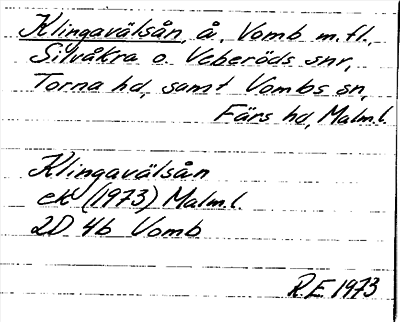 Klingavälsån, å, Vomb m.fl.,
Silvåkra o. Veberöds snr,
Torna hd, samt Vombs sn,
Färs hd, Malm.l.
Klingavälsån
ek (1973) Malm.l.
2D 4b Vomb
R.E. 1973